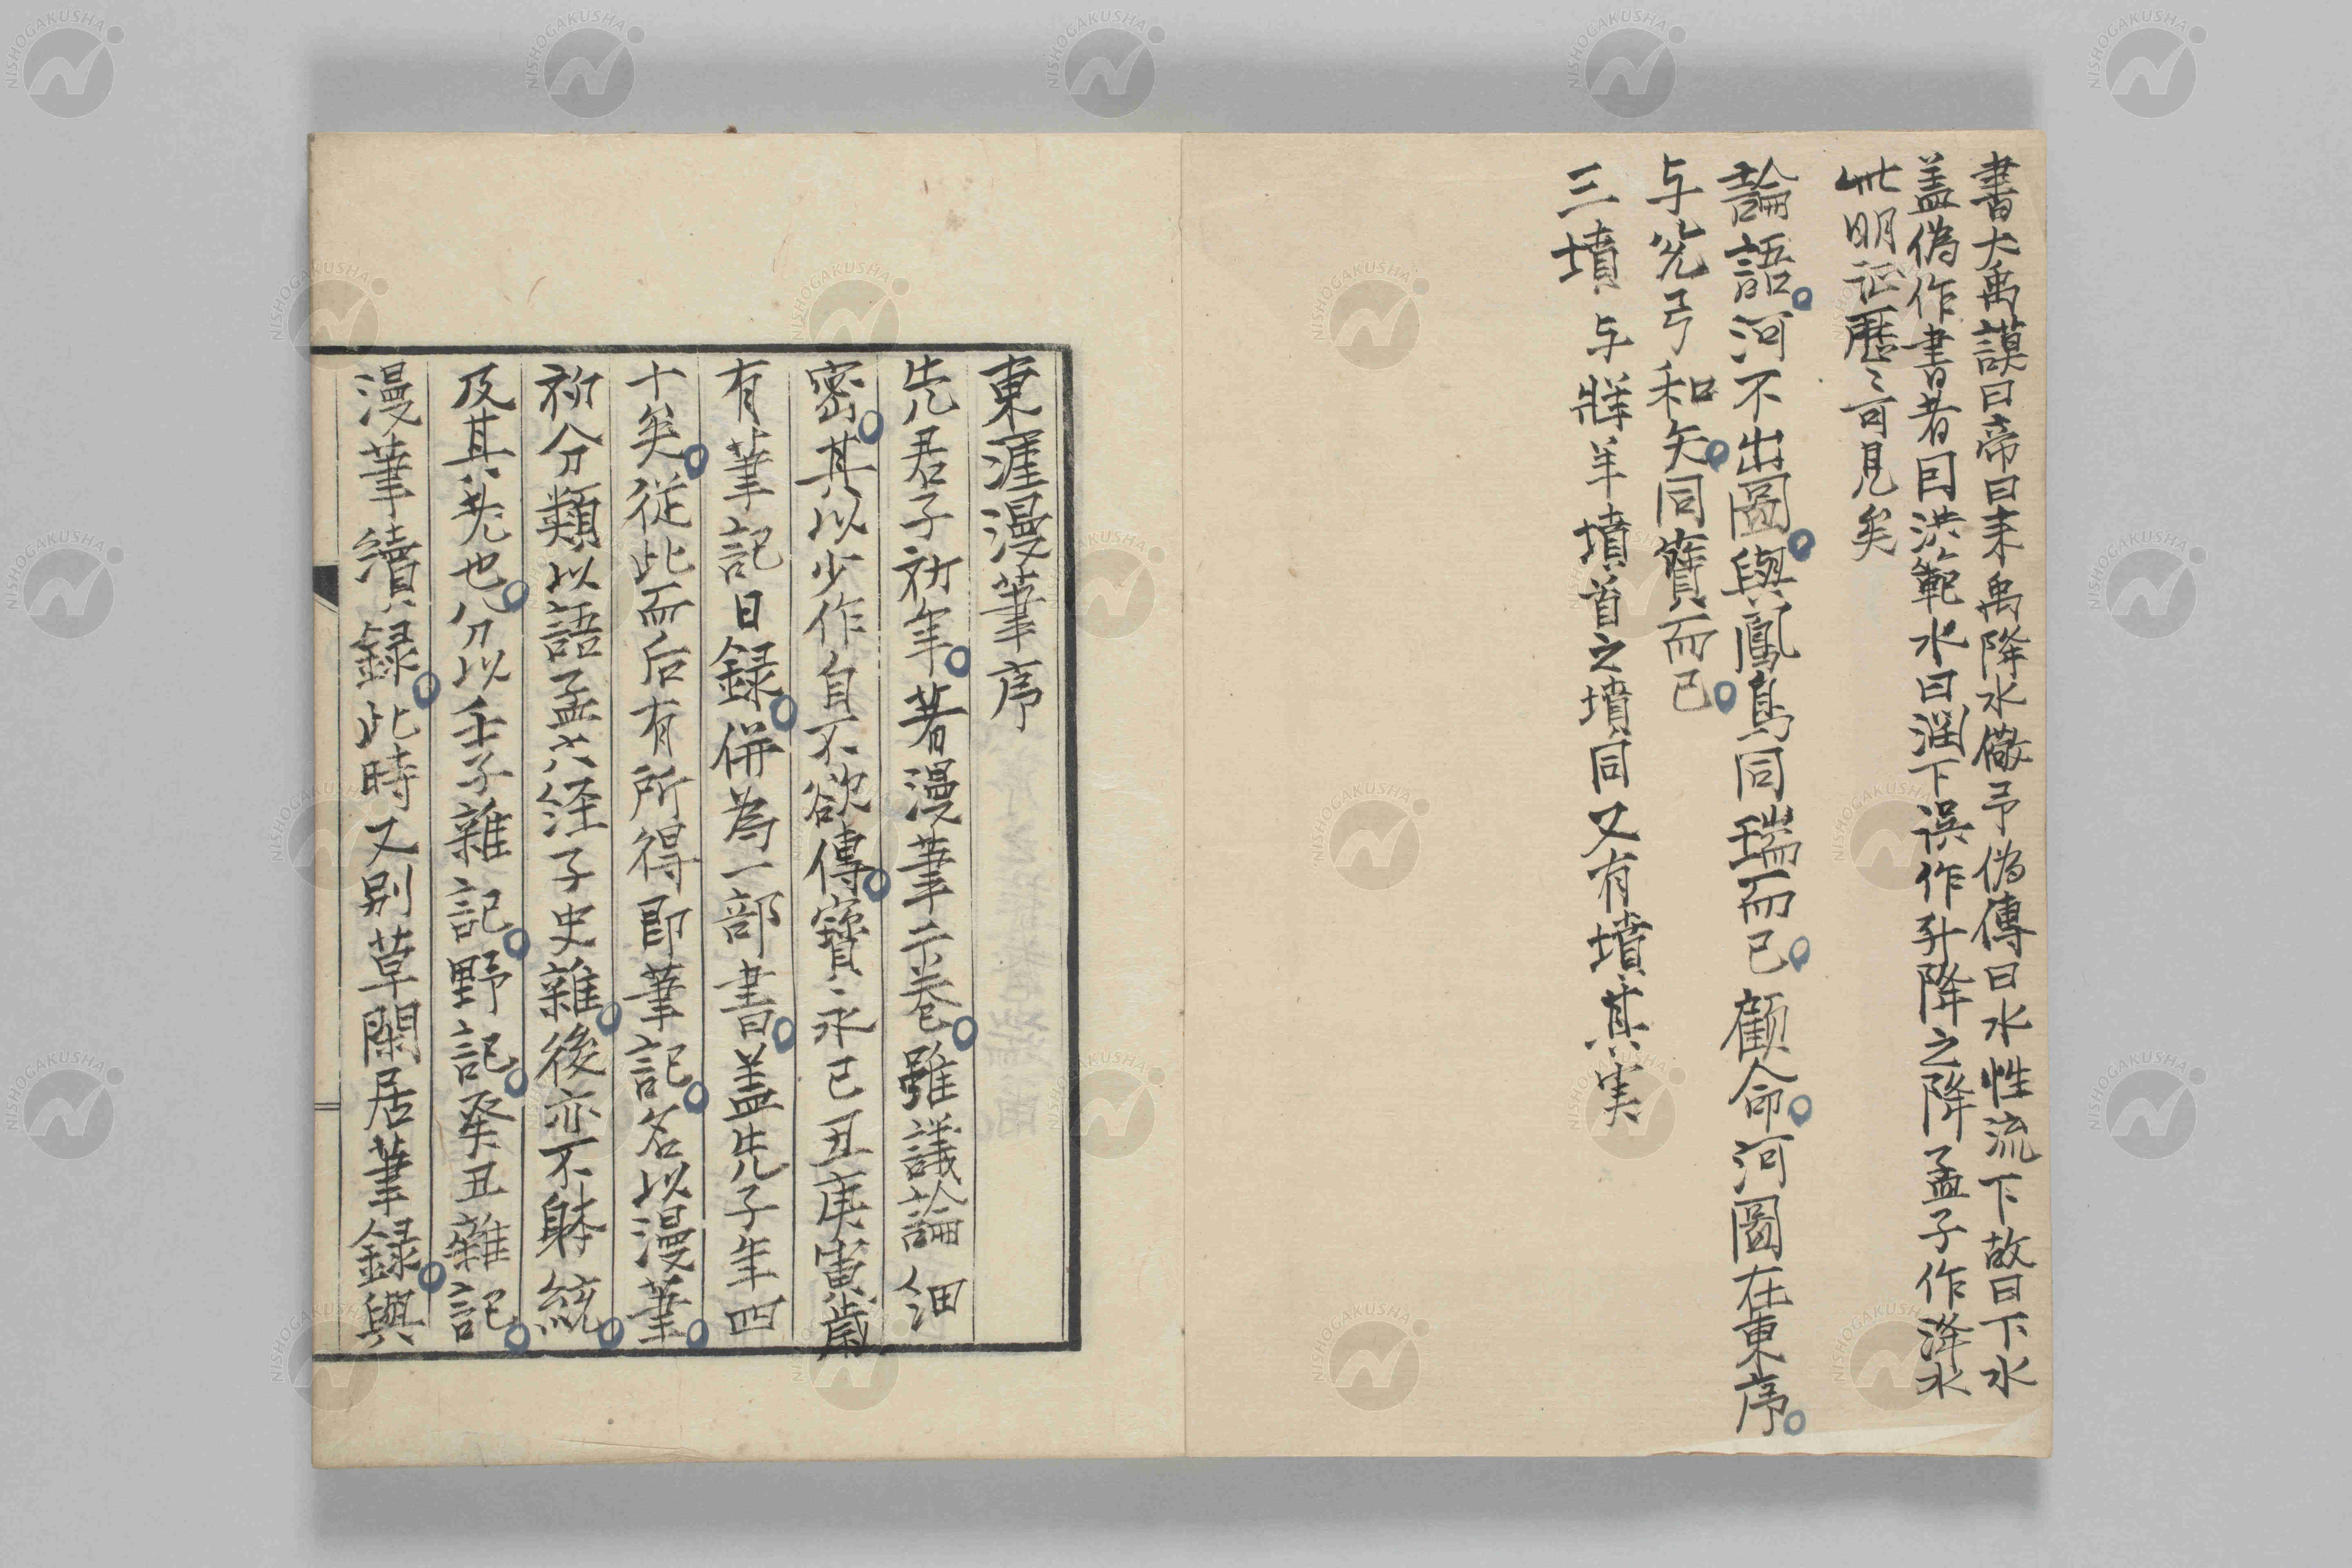 書大禹謨曰帝曰来禹降水儆予偽傳曰水性流下故曰下水
盖偽作書者因洪範水曰潤下誤作升降之降孟子作洚水
此明証歷〻可見矣
論語河不出圖與鳳鳥同瑞而已顧命河圖在東序
与兊弓和矢同寶而已
三墳与牂羊墳首之墳同又有墳其実
東涯漫筆序
先君子初年著漫筆二巻雖議論細
密其以少作自不欲傳寶永己丑庚寅歳
有筆記日録併為一部書盖先子年四
十矣従此而后有所得即筆記名以漫筆
初分類以語孟六経子史雜後亦不躰統
及其先也分以壬子雜記野記癸丑雜記
漫筆續録此時又別草閑居筆録與
NISHOGAKUSHA